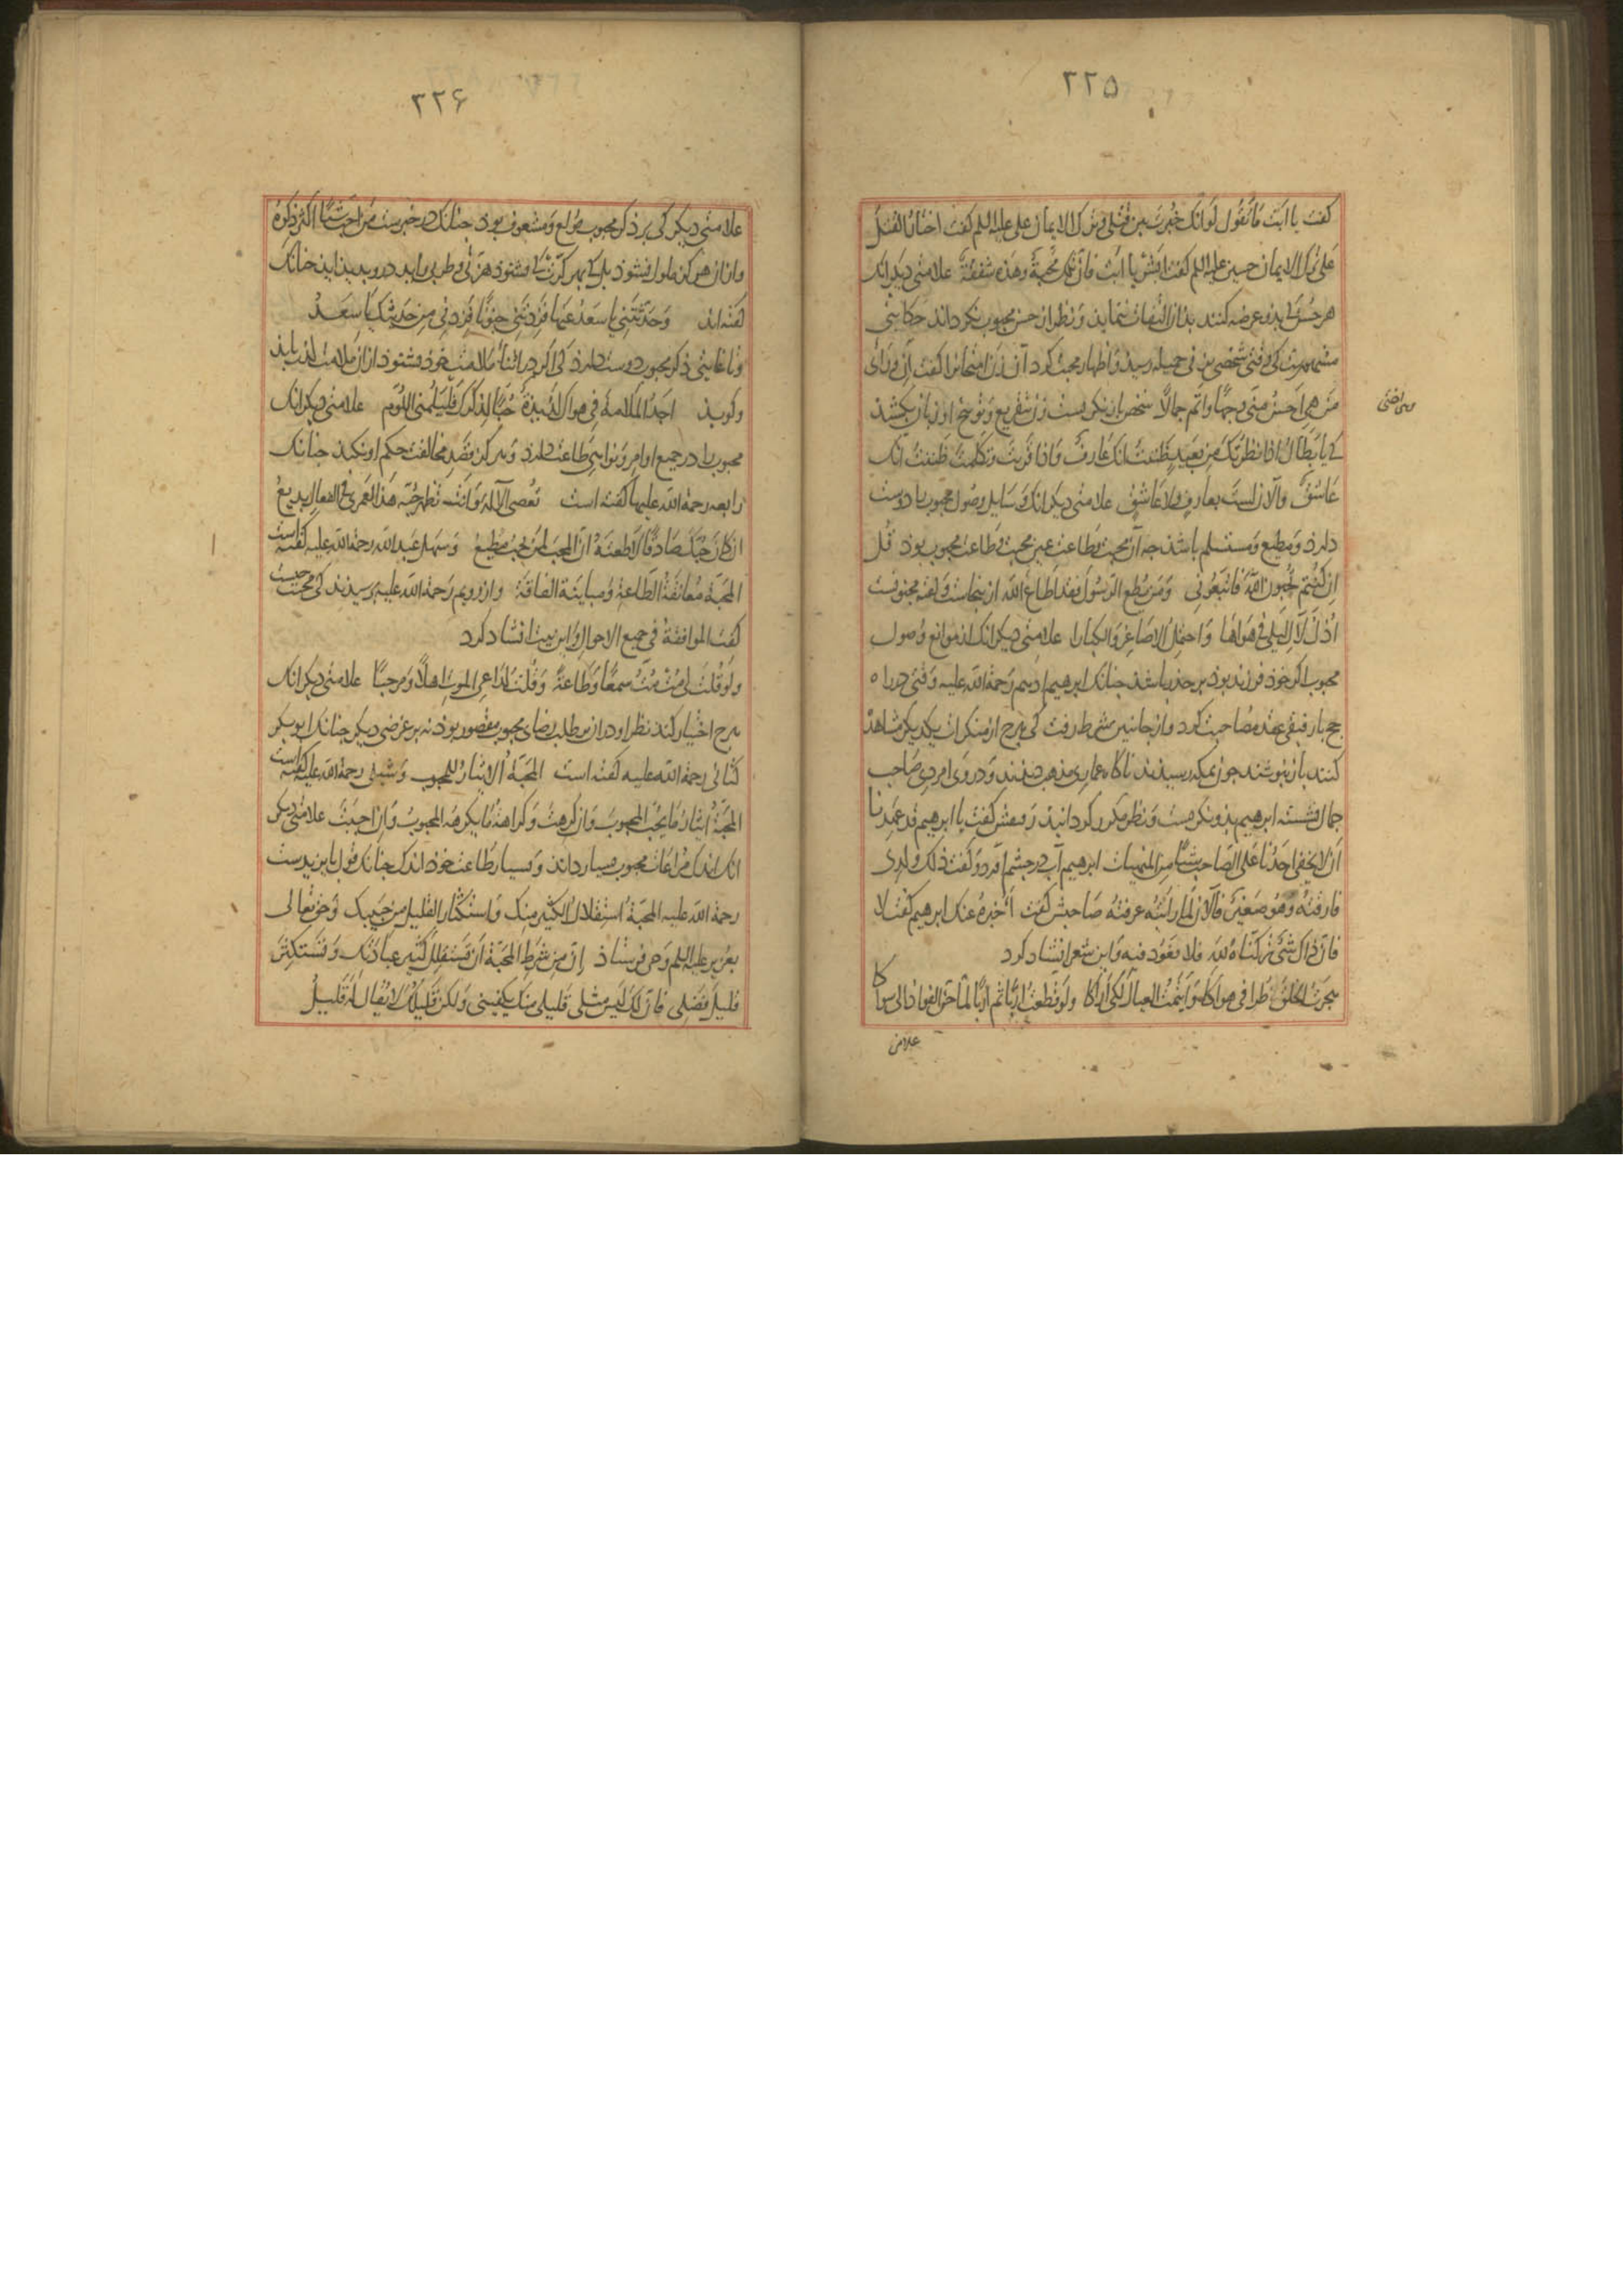 ۲۲۵
کفت یا ابت ما تقول لو انک خیرت بین قتلی وترک الایمان علی علیه السلم کفت اختار القتل
علی ترک الایمان حسین علیه السلم کفت ابشر یا ابت فان تلک محبة وهذه شفقة علامتی دیکر انک
هر حسن کی بذو عرضه کنند بذان التفات ننماید و نظر از حسن محبوب نکرداند حکایتی
مشهورست کی وقتی شخصی بزنی جمیله رسید و اظهار محبت کرد آن زن امتحانرا کفت ان ورائی
من هی احسن منی وجها واتم جمالا شخص باز نکریست زن بتقریع و توبیخ او زبان بکشذ
کی یا بطال اذا نظرتک من بعید ظننت انک عارف واذا قربت وتکلمت ظننت انک
عاشق والان لست بعارف ولا عاشق علامتی دیکر انک وسایل وصول محبوب را دوست
دارد و مطیع و مستسلم باشذ چه آن محبت و طاعت عین محبت و طاعت محبوب بوذ قل
ان کنتم تحبون الله فاتبعونی ومن یطع الرسول فقد اطاع الله از ینجاست و لفته مجنونست
اذل لآل لیلی فی هواها واحتمل الاصاغر والکبارا علامتی دیکر انک از موانع وصول
محبوب اکر خوذ فرزند بوذ بر حذر باشذ چنانک ابرهیم ادهم رحمة الله علیه وقتی در راه
حج با رفیقی عقد مصاحبت کرد و از جانبین شرط رفت کی هرچ از منکرات یکدیکر مشاهده
کنند باز نپوشند چون بمکه رسیدند ناکاه عماری مذهب دیدند و درو امردی صاحب
جمال نشسته ابرهیم بذو نکریست و نظر مکرر کردانید رفیقش کفت یا ابرهیم قد عهدنا
ان لا یخفی احدنا علی الصاحب شیئا من المنهیات ابرهیم آب در چشم آورد و کفت ذلک ولدی
فارقته وهو صغیر فالان لما رایته عرفته صاحبش کفت أأخبره عنک ابرهیم کفت لا
فان ذاک شئ ترکناه لله فلا نعود فیه و این شعر انشاد کرد
هجرت الخلق طرا فی هواکا وایتمت العیال لکی اراکا ولو قطعتنی اربا ثم اربا لما حن الفواد الی سواکا
علامتی
۲۲۶
علامتی دیکر کی بر ذکر محبوب مولع و مشعوف بوذ چنانک در خبرست من احب شیئا اکثر ذکره
وازان هرکز ملول نشوذ بل کی بهر کرت کی بشنوذ هزتی و طربی در وی پدید اید چنانک
کفته اند وحدثتنی یا سعد عنها فزدتنی جنونا فزدنی من حدیثک یا سعد
و تا غایتی ذکر محبوب دوست دارذ کی اکر در اثناء ملامت خوذ بشنوذ از ان ملامت لذت یابذ
وکویذ اجد الملامة فی هواک لذیذة حبا لذکرک فلیلمنی اللوم علامتی دیکر انک
محبوب را در جمیع اوامر و نواهی طاعت دارذ و هرکز قصد مخالفت حکم او نکند چنانک
رابعه رحمة الله علیها کفته است تعصی الاله وانت تظهر حبه هذا لعمری فی الفعال بدیع
ان کان حبک صادقا لاطعته ان المحب لمن یحب مطیع و سهل عبد الله رحمة الله علیه کفته است
المحبة معانقة الطاعة ومباینة الفاقة واز رویم رحمة الله علیه پرسیذند کی محبت چیست
کفت الموافقة فی جمیع الاحوال و این بیت انشاد کرد
ولو قلت لی مت مت سمعا وطاعة وقلت لداعی الموت اهلا ومرحبا علامتی دیکر انک
هرچ اختیار کند نظر او در ان بر طلب رضای محبوب مقصور بوذ نه بر غرضی دیکر چنانک ابو بکر
کتانی رحمة الله علیه کفته است المحبة الایثار للمحبوب و شبلی رحمة الله علیه کفته است
المحبة ایثار ما یحب المحبوب وان کرهت وکراهة ما یکرهه المحبوب وان احببت علامتی دیکر
انک اندک مراعات محبوب بسیار داند و بسیار طاعت خوذ اندک چنانک قول بایزیدست
رحمة الله علیه المحبة استقلال الکثیر منک واستکثار القلیل من حبیبک و حق تعالی
بعزیر علیه السلم وحی فرستاذ ان من شرط المحبة ان تستقلل کثیر عبادتک وتستکثر
قلیل فضلی فان لک لیس مثلی قلیل منک یکفینی ولکن قلیلک لا یقال له قلیل